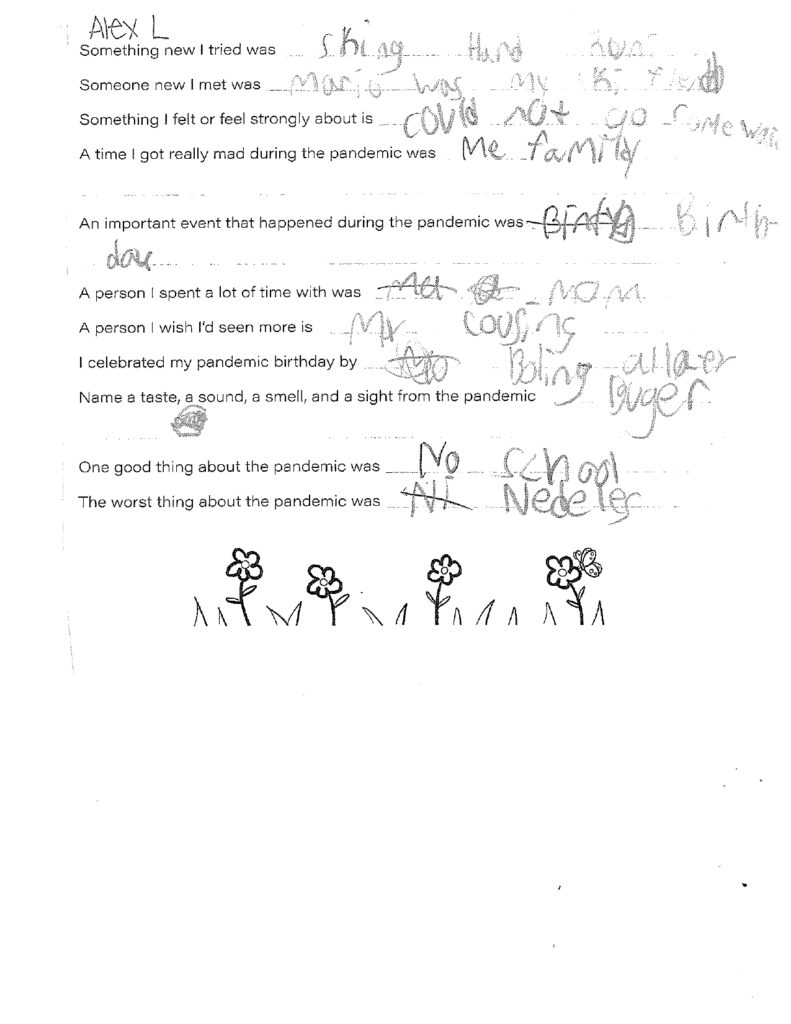 Alex L
Something new I tried was sking Hard
Someone new I met was Mario was my
Something I felt or feel strongly about is could not go some wai
A time I got really mad during the pandemic was Me family
An important event that happened during the pandemic was Birth
day
A person I spent a lot of time with was MoM
A person I wish I'd seen more is My cousing
I celebrated my pandemic birthday by Boling at laver
Name a taste, a sound, a smell, and a sight from the pandemic Buger
One good thing about the pandemic was No school
The worst thing about the pandemic was Nedeles